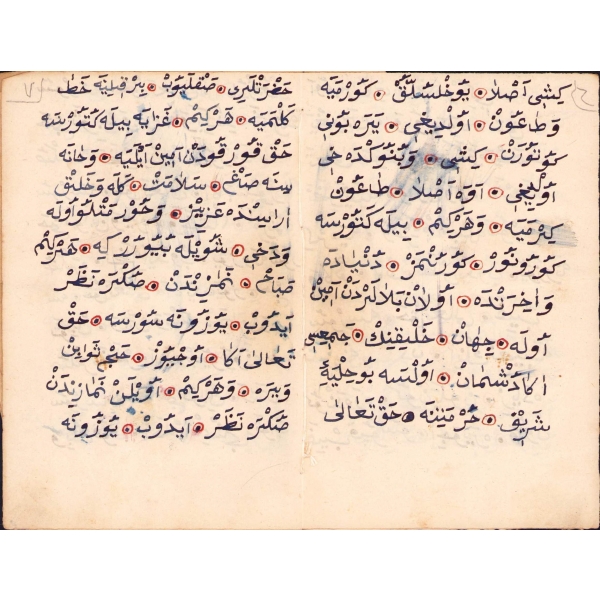 كشى اصلا يوخسللق كورميه
وطاعون اولديغى يره بونى
كوتورن كشى وبوتوكده خى
اولغى اوه اصلا طاعون
كرميه وهركم بيله كتورسه
كورونور كورنمز دنياده
واخرنده اولان بلالردن امين
اوله جهان خليقينك جميعسى
اكا دشمان اولسه بو حليۀ
شريف حرمتنه حق تعالى
حضرتلرى صقليوب بر قيلنه خطا
كلميه هركم غزايه بيله كتورسه
حق قورقودن امين ايليه وخانه
سنه صاغ سلامت كله وخلق
اراسنده عزيز وحورمتلو اوله
ودخى شويله بيورر كه هركم
صباح نمازندن صكره نظر
ايدوب يوزونه سورسه حق
تعالى اكا اوجيوز حج ثوابن
ويره وهركم اويلن نمازندن
صكره نظر ايدوب يوزونه